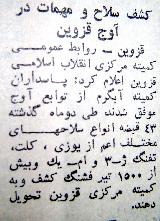 کشف سلاح و مهمات در
آوج قزوین
قزوین - روابط عمومی
کمیته مرکزی انقلاب اسلامی
قزوین اعلام کرد: پاسداران
کمیته آبگرم از توابع آوج
موفق شدند طی دوماه گذشته
۴۳ قبضه انواع سلاحهای
مختلف اعم از یوزی، کلت،
تفنگ ژ-۳ و ام-یک وبیش
از ۱۵۰۰ تیر فشنگ کشف وبه
کمیته مرکزی قزوین تحویل
دهند.